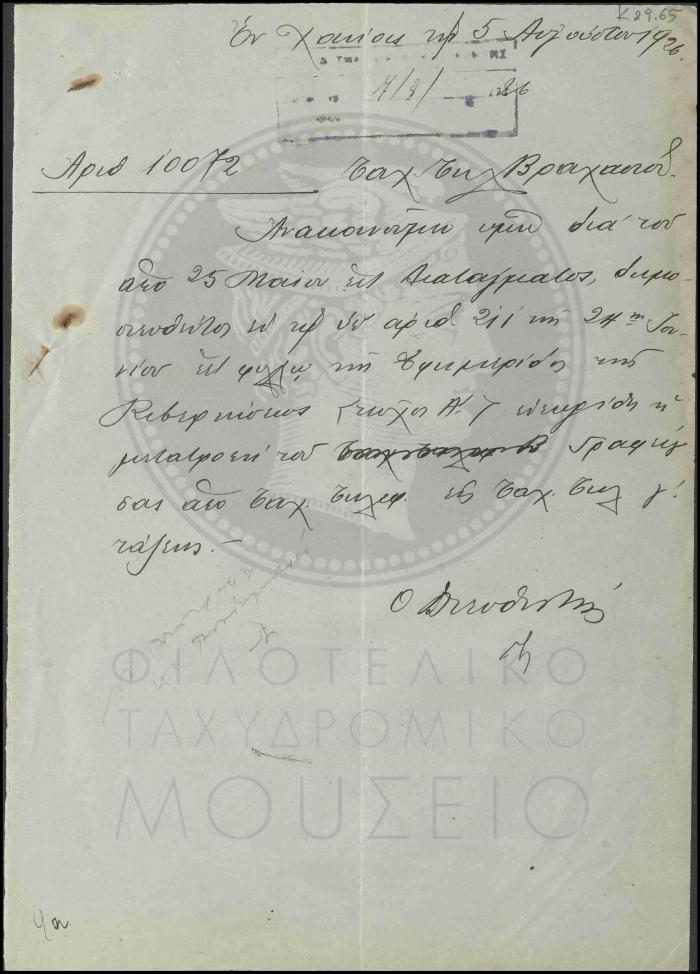 Κ29.65
Ἐν Χανίοις τῇ 5 Αὐγούστου 1926
7/8/ 26
Ἀριθ 10072
Ταχ. Τηλ Βραχασίου.
Ἀνακοινοῦμεν ὑμῖν διὰ τοῦ
ἀπὸ 25 Μαΐου ἐ.ἔ. Διατάγματος, δημο-
σιευθέντος ἐν τῷ ὑπ ἀριθ 211 τῆς 24ης Ἰου-
νίου ἐ.ἔ. φύλλῳ τῆς Ἐφημερίδος τῆς
Κυβερνήσεως (τεῦχος Α΄.) ἐνεκρίθη ἡ
μετατροπὴ τοῦ Γραφείου
σας ἀπὸ Ταχ. Τηλεφ. εἰς Ταχ. Τηλ γ΄.
τάξεως.-
Ὁ Διευθυντής
ΦΙΛΟΤΕΛΙΚΟ
ΤΑΧΥΔΡΟΜΙΚΟ
ΜΟΥΣΕΙΟ